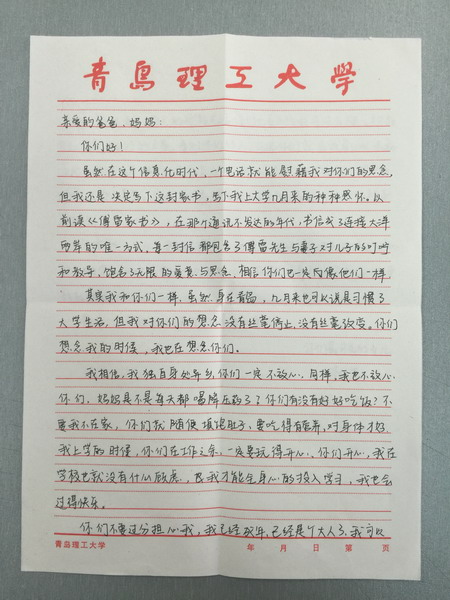 青岛理工大学
亲爱的爸爸、妈妈:
你们好!
虽然在这个信息化时代,一个电话就能慰藉我对你们的思念,
但我还是决定写下这封家书,写下我上大学九月来的种种感怀。从
前读《傅雷家书》,在那个通讯不发达的年代,书信成了连接大洋
两岸的唯一方式,每一封信都包含了傅雷先生与妻子对儿子的叮咛
和教导,饱含了无限的爱意与思念,相信你们也一定同他们一样
其实我和你们一样,虽然身在青岛,九月来也可以说是习惯了
大学生活,但我对你们的想念没有丝毫停止,没有丝毫改变,你们
想念我的时候,我也在想念你们。
我相信,我独自身处异乡,你们一定不放心,同样,我也不放心
你们,妈妈是不是每天都喝降压药了?你们有没有好好吃饭?不
要我不在家,你们就随便填饱肚子,要吃得有营养,对身体才好,
我上学的时候,你们在工作之余,一定要玩得开心,你们开心,我在
学校也就没有什么顾虑,我才能全身心的投入学习,我也会
过得快乐。
你们不要过分担心我,我已经成年,已经是个大人了,我可以
青岛理工大学 年 月 日 第 页